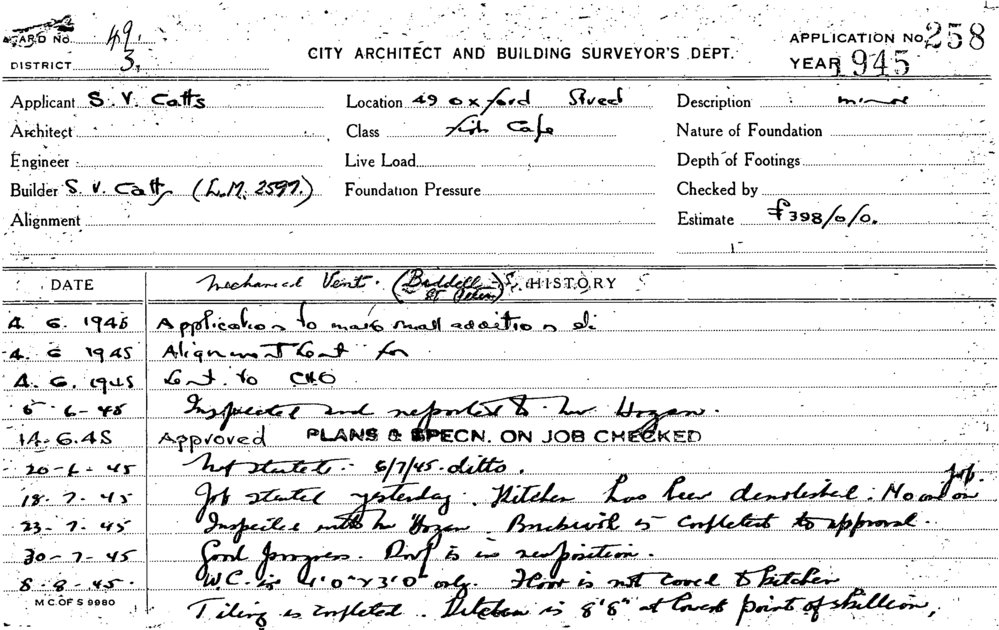 CARD No. 49.
DISTRICT 3.
CITY ARCHITECT AND BUILDING SURVEYOR'S DEPT.
APPLICATION No. 258
YEAR 1945
Applicant S. V. Catts
Location 49 Oxford Street
Description minor
Architect
Class Fish Cafe
Nature of Foundation
Engineer
Live Load
Depth of Footings
Builder S. V. Catts (L.M. 2597.)
Foundation Pressure
Checked by
Alignment
Estimate £398/0/0.
DATE
Mechanical Vent. (Biddell
HISTORY
4. 6. 1945 Application to make small additions
4. 6 1945 Alignment sent for
4. 6. 1945 Sent to CHO
5-6-45 Inspected and reported to Mr Hogan.
14.6.45 Approved PLANS & SPECN. ON JOB CHECKED
20-6-45 Not started. 6/7/45. ditto.
18.7.45 Job started yesterday. Kitchen has been demolished. No one on job.
23-7.45 Inspected with Mr Hogan. Brickwork is completed to approval.
30-7-45 Good progress. Roof is in position.
8-8-45. W.C. is 4'0" x 3'0" only. Floor is not coved to kitchen
M C. OF S 9980
Tiling is completed. Kitchen is 8'8" at lowest point of skillion,